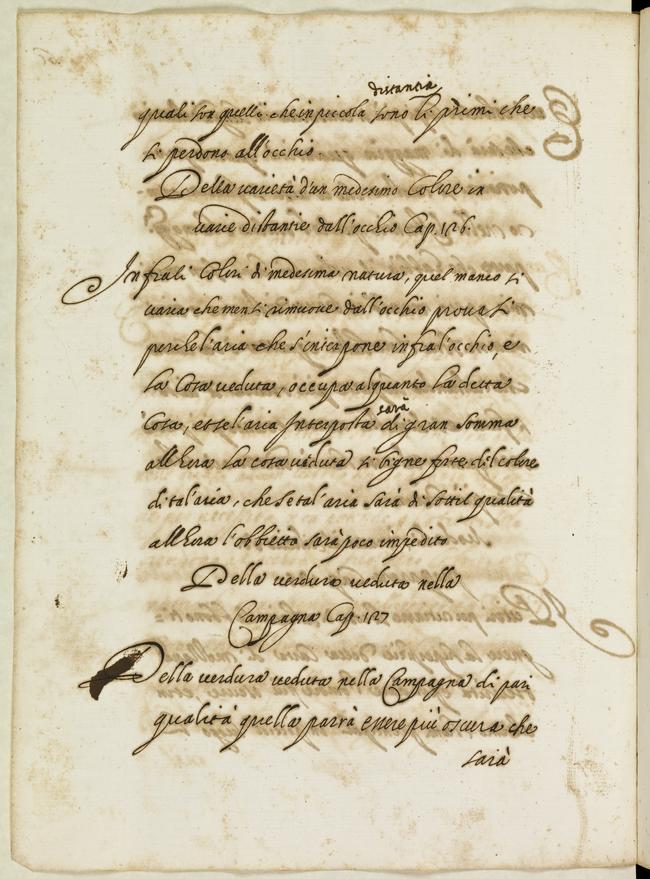 distantia
quali son quelli che in piccola sono li primi che
si perdono all'occhio.
Della varietà d'un medesimo Colore in
varie distantie dall'occhio Cap. 126.
Infrali Colori di medesima natura, quel manco si
varia che men si rimuove dall'occhio prova si
perche l'aria che s'interpone infra l'occhio, e
la Cosa veduta, occupa alquanto la detta
sarà
Cosa, et se l'aria Interposta di gran somma
allhora la cosa veduta si tigne forte del colore
di tal'aria, che se tal'aria sarà di sottil qualità
allhora l'obbietto sarà poco impedito.
Della verdura veduta nella
Campagna Cap. 127
Della verdura veduta nella Campagna di pari
qualità quella parrà essere più oscura che
sarà